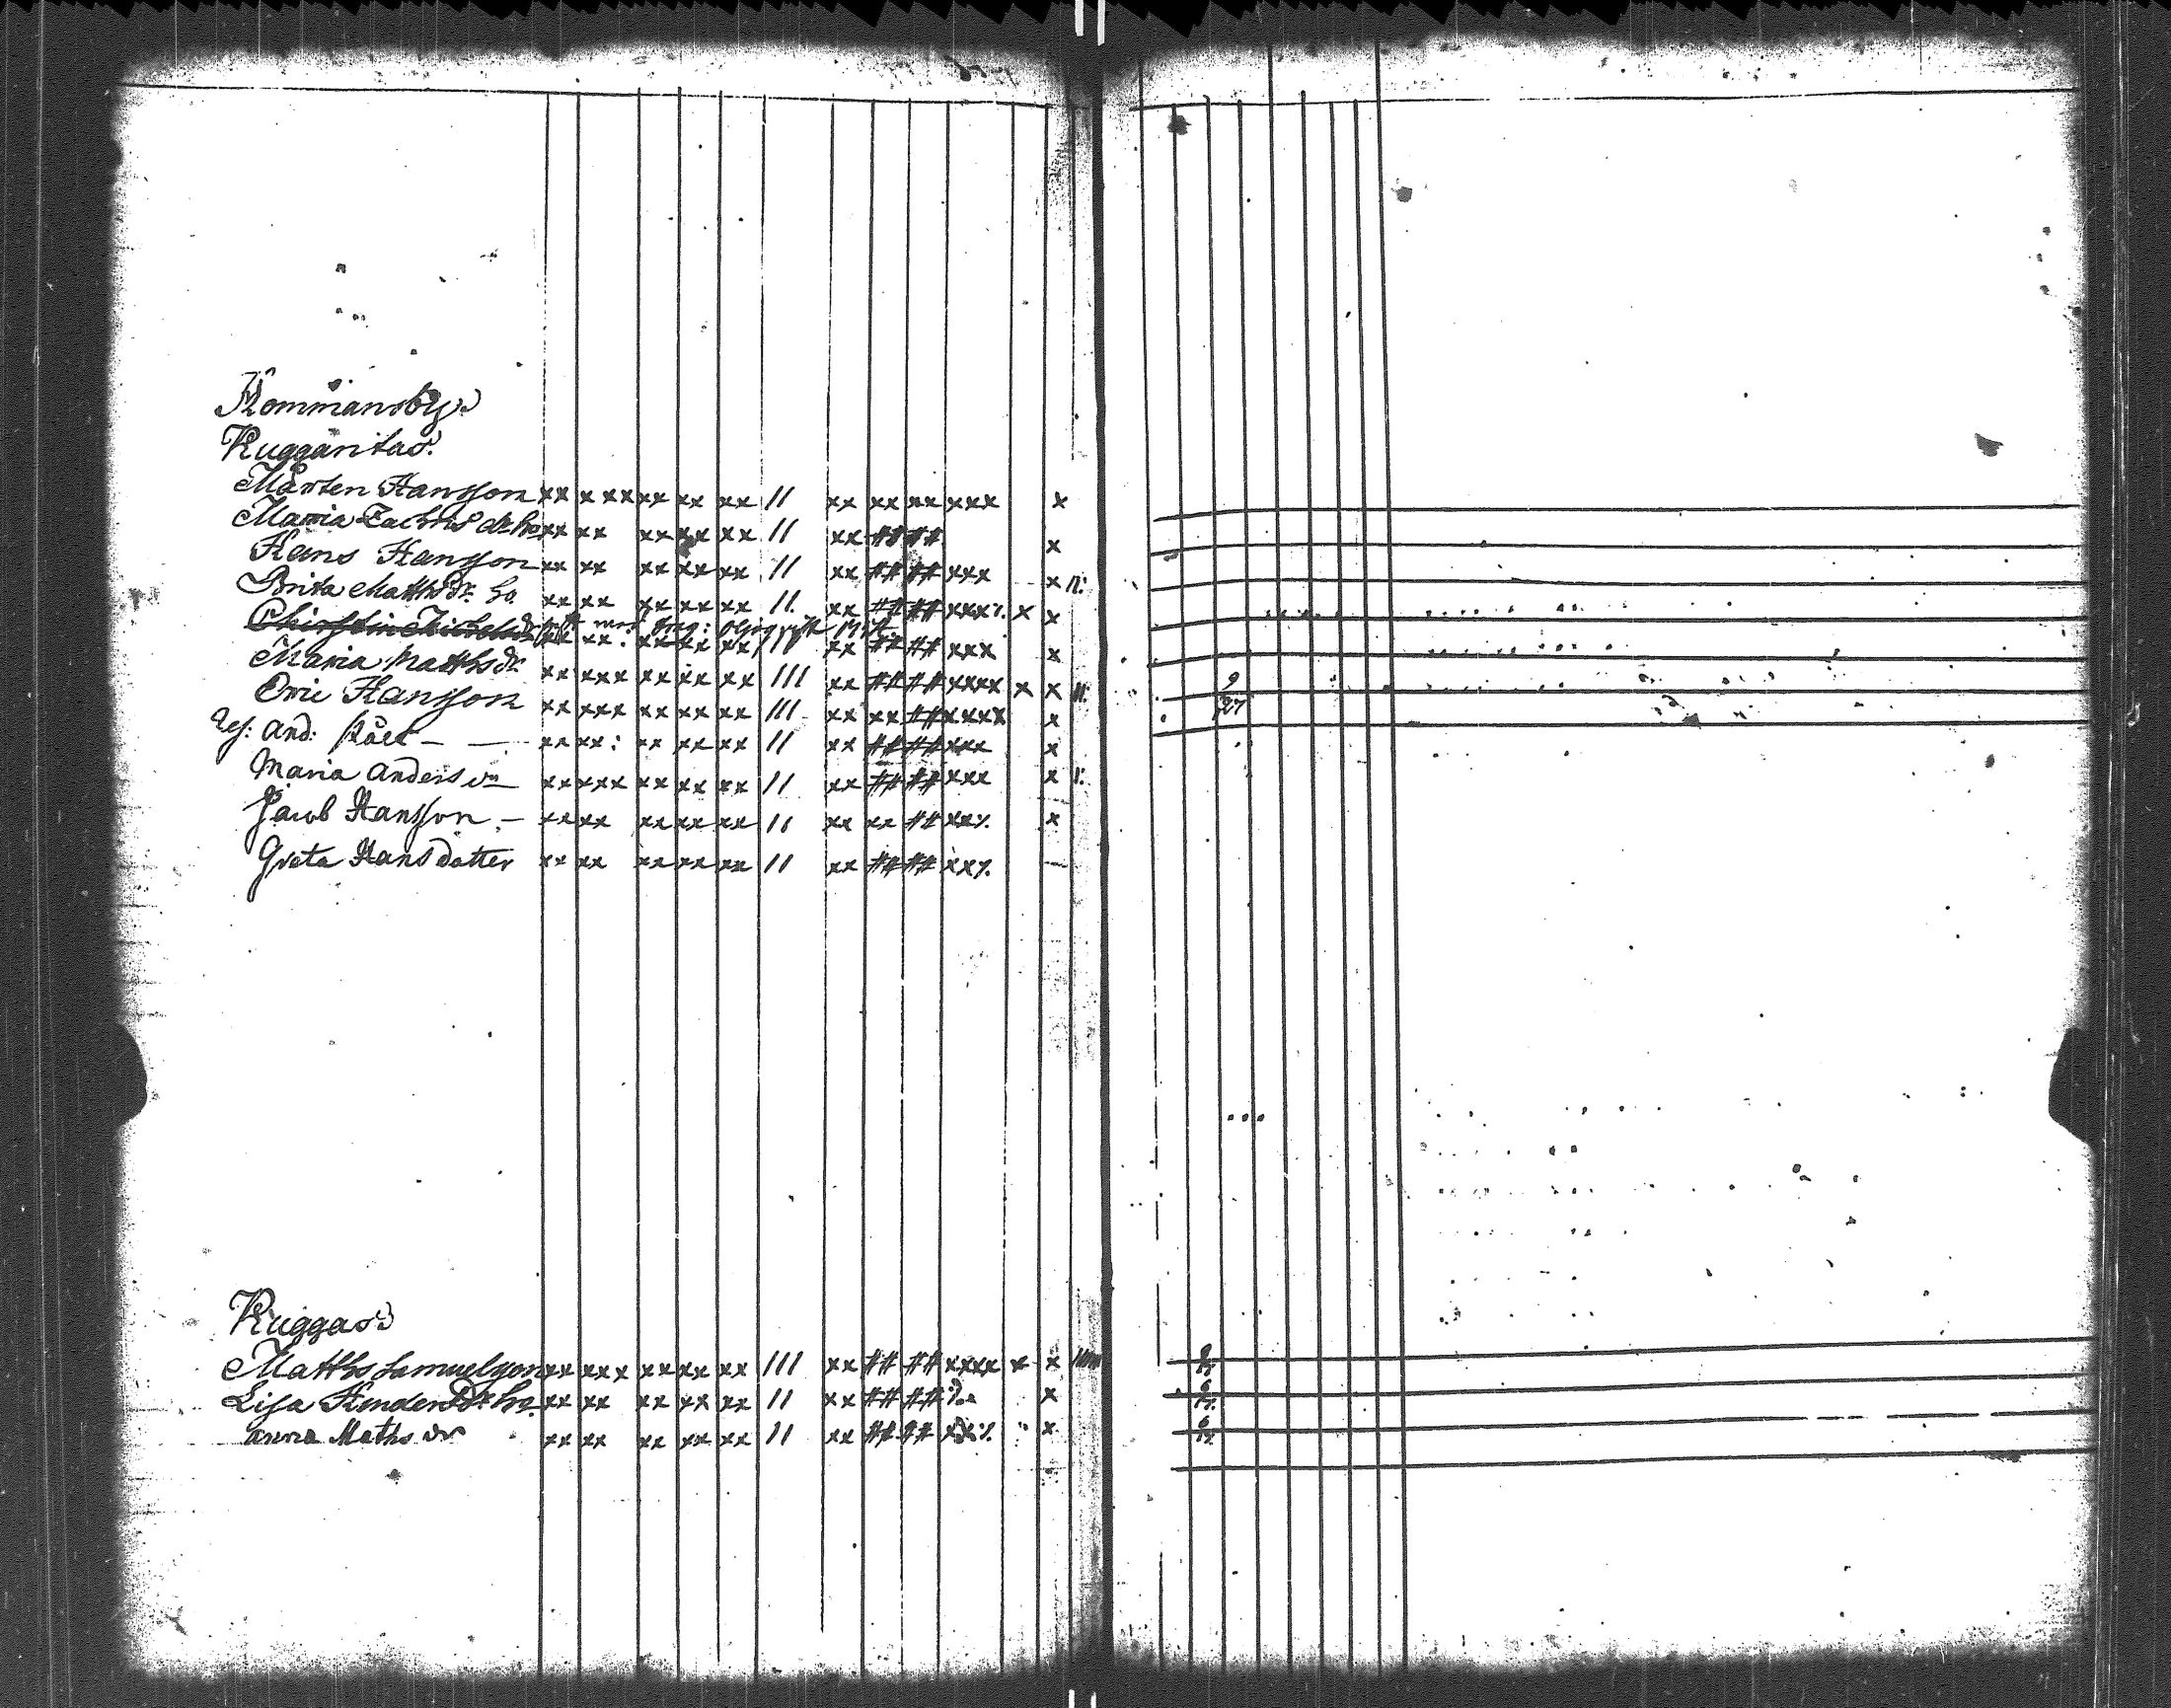 Kommansby.
Ruggantas.
Mårten Hansson xx x xx xx xx xx 11 xx xx xx xxx x
Maria Zachris dr ho xx xx xx xx xx 11 xx ## ## x
Hans Hansson xx xx xx xx xx 11 xx ## ## xxx x 11:
Brita Matthsdr. ho xx xx xx xx xx 11 xx ## ## xxx% x x
xx xx: xx xx xx 11 xx ## ## xxx x
Maria Matthsdr. xx xxx xx xx xx 111 xx ## ## xxxx x x 11:
Eric Hansson xx xxx xx xx xx 111 xx xx ## xxxx x 9/27
And: xx xx: xx xx xx 11 xx ## ## xxx x
Maria Anders dr xx xxx xx xx xx 11 xx ## ## xxx x 1:
Jacob Hansson - xx xx xx xx xx 11 xx xx ## xx% x
Greta Hansdotter xx xx xx xx xx 11 xx ## ## xx% —
Ruggas
Matths Samuelsson xx xxx xx xx xx 111 xx ## ## xxxx x x
Lisa Hendersdr ho. xx xx xx xx xx 11 xx ## ## x
Anna Maths dr xx xx xx xx xx 11 xx ## ## x